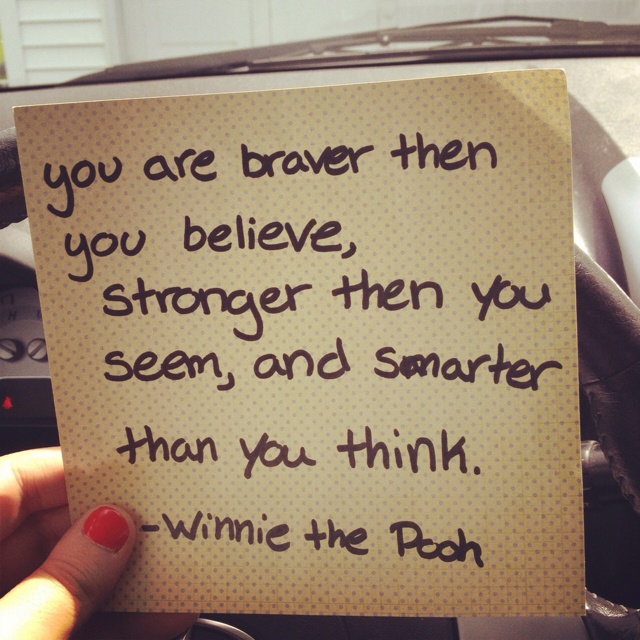 you are braver then
you believe,
stronger then you
seem, and smarter
than you think.
-Winnie the Pooh